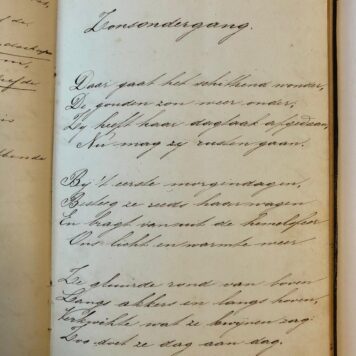 Zonsondergang.
Daar gaat het schittrend wonder,
De gouden zon weer onder,
Zy heeft haar dagtaak afgedaan,
Nu mag zy rusten gaan.
By 't eerste morgendagen,
Besteeg ze reeds haar wagen
En bragt vanuit de hemelsfeer
Ons licht en warmte weer
Ze gluurde rond van boven
Langs akkers en langs hoven,
Verkwikte wat ze kwijnen zag:
Zoo doet ze dag aan dag.